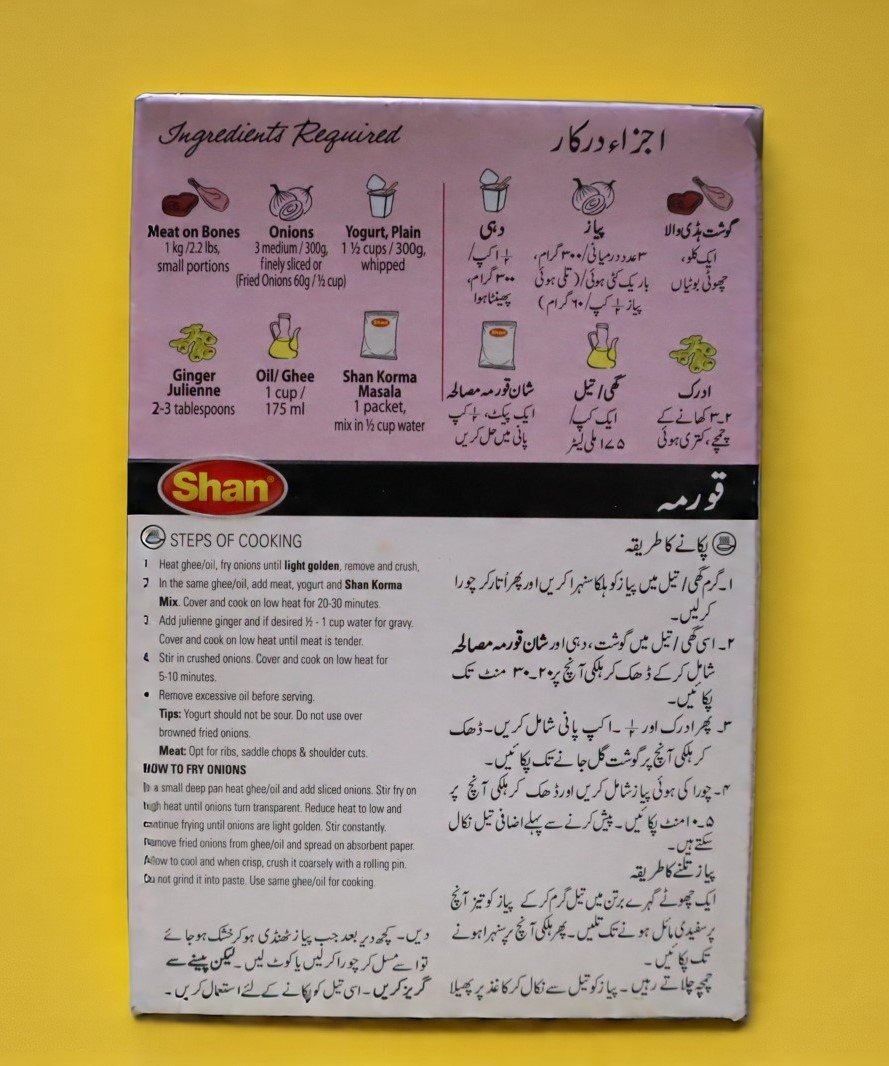 Ingredients Required
Meat on Bones
1 kg /2.2 lbs,
small portions
Onions
3 medium / 300g,
finely sliced or
(Fried Onions 60g / ½ cup)
Yogurt, Plain
1 ½ cups / 300g,
whipped
Ginger
Julienne
2-3 tablespoons
Oil/ Ghee
1 cup /
175 ml
Shan
Shan Korma
Masala
1 packet,
mix in ½ cup water
اجزاء درکار
گوشت ہڈی والا
ایک کلو،
چھوٹی بوٹیاں
پیاز
۳ عدد درمیانی/ ۳۰۰ گرام،
باریک کٹی ہوئی/ (تلی ہوئی
پیاز ½ کپ/ ۶۰ گرام)
دہی
½ ۱ کپ/
۳۰۰ گرام،
پھینٹا ہوا
ادرک
۲-۳ کھانے کے
چمچے، کتری ہوئی
گھی/ تیل
ایک کپ/
۱۷۵ ملی لیٹر
Shan
شان قورمہ مصالحہ
ایک پیکٹ، ½ کپ
پانی میں حل کریں
Shan®
قورمہ
STEPS OF COOKING
1 Heat ghee/oil, fry onions until light golden, remove and crush,
2 In the same ghee/oil, add meat, yogurt and Shan Korma
Mix. Cover and cook on low heat for 20-30 minutes.
3 Add julienne ginger and if desired ½ - 1 cup water for gravy.
Cover and cook on low heat until meat is tender.
4 Stir in crushed onions. Cover and cook on low heat for
5-10 minutes.
• Remove excessive oil before serving.
Tips: Yogurt should not be sour. Do not use over
browned fried onions.
Meat: Opt for ribs, saddle chops & shoulder cuts.
HOW TO FRY ONIONS
In a small deep pan heat ghee/oil and add sliced onions. Stir fry on
high heat until onions turn transparent. Reduce heat to low and
continue frying until onions are light golden. Stir constantly.
Remove fried onions from ghee/oil and spread on absorbent paper.
Allow to cool and when crisp, crush it coarsely with a rolling pin.
Do not grind it into paste. Use same ghee/oil for cooking.
پکانے کا طریقہ
۱۔ گرم گھی/ تیل میں پیاز کو ہلکا سنہرا کریں اور پھر اُتار کر چورا
کرلیں۔
۲۔ اسی گھی/ تیل میں گوشت، دہی اور شان قورمہ مصالحہ
شامل کرکے ڈھک کر ہلکی آنچ پر ۲۰-۳۰ منٹ تک
پکائیں۔
۳۔ پھر ادرک اور ½ ۔ ا کپ پانی شامل کریں۔ ڈھک
کر ہلکی آنچ پر گوشت گل جانے تک پکائیں۔
۴۔ چورا کی ہوئی پیاز شامل کریں اور ڈھک کر ہلکی آنچ پر
۵-۱۰ منٹ پکائیں۔ پیش کرنے سے پہلے اضافی تیل نکال
سکتے ہیں۔
پیاز تلنے کا طریقہ
ایک چھوٹے گہرے برتن میں تیل گرم کرکے پیاز کو تیز آنچ
پر سفیدی مائل ہونے تک تلیں۔ پھر ہلکی آنچ پر سنہرا ہونے
تک پکائیں۔
چمچہ چلاتے رہیں۔ پیاز کو تیل سے نکال کر کاغذ پر پھیلا
دیں۔ کچھ دیر بعد جب پیاز ٹھنڈی ہو کر خشک ہوجائے
تو اسے مسل کر چورا کرلیں یا کوٹ لیں۔ لیکن پیسنے سے
گریز کریں۔ اسی تیل کو پکانے کے لئے استعمال کریں۔